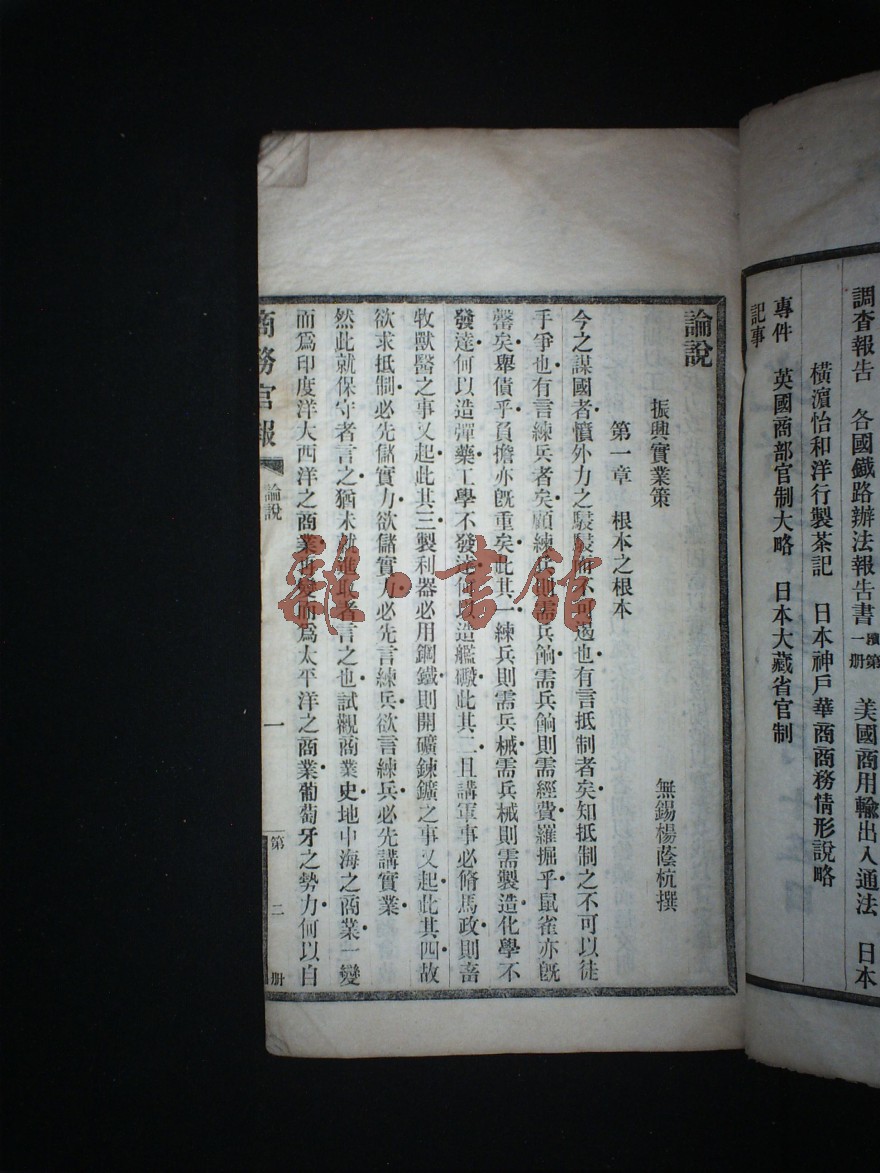 調查報告　各國鐵路辦法報告書續第一册　美國商用輸出入通法　日本
橫濱怡和洋行製茶記　日本神戶華商商務情形說略
專件　英國商部官制大略　日本大藏省官制
記事
論說
振興實業策
無錫楊蔭杭撰
第一章　根本之根本
今之謀國者憤外力之駸駸而不可遏也有言抵制者矣知抵制之不可以徒
手爭也有言練兵者矣顧練兵則需兵餉需兵餉則需經費羅掘乎鼠雀亦旣
罄矣舉債乎負擔亦旣重矣此其一練兵則需兵械需兵械則需製造化學不
發達何以造彈藥工學不發達何以造艦礮此其二且講軍事必脩馬政則畜
牧獸醫之事又起此其三製利器必用鋼鐵則開礦鍊鑛之事又起此其四故
欲求抵制必先儲實力欲儲實力必先言練兵欲言練兵必先講實業
然此就保守者言之猶未就進取者言之也試觀商業史地中海之商業一變
而爲印度洋大西洋之商業再變而爲太平洋之商業葡萄牙之勢力何以自
商務官報
論說
一
第二册
雜·書館